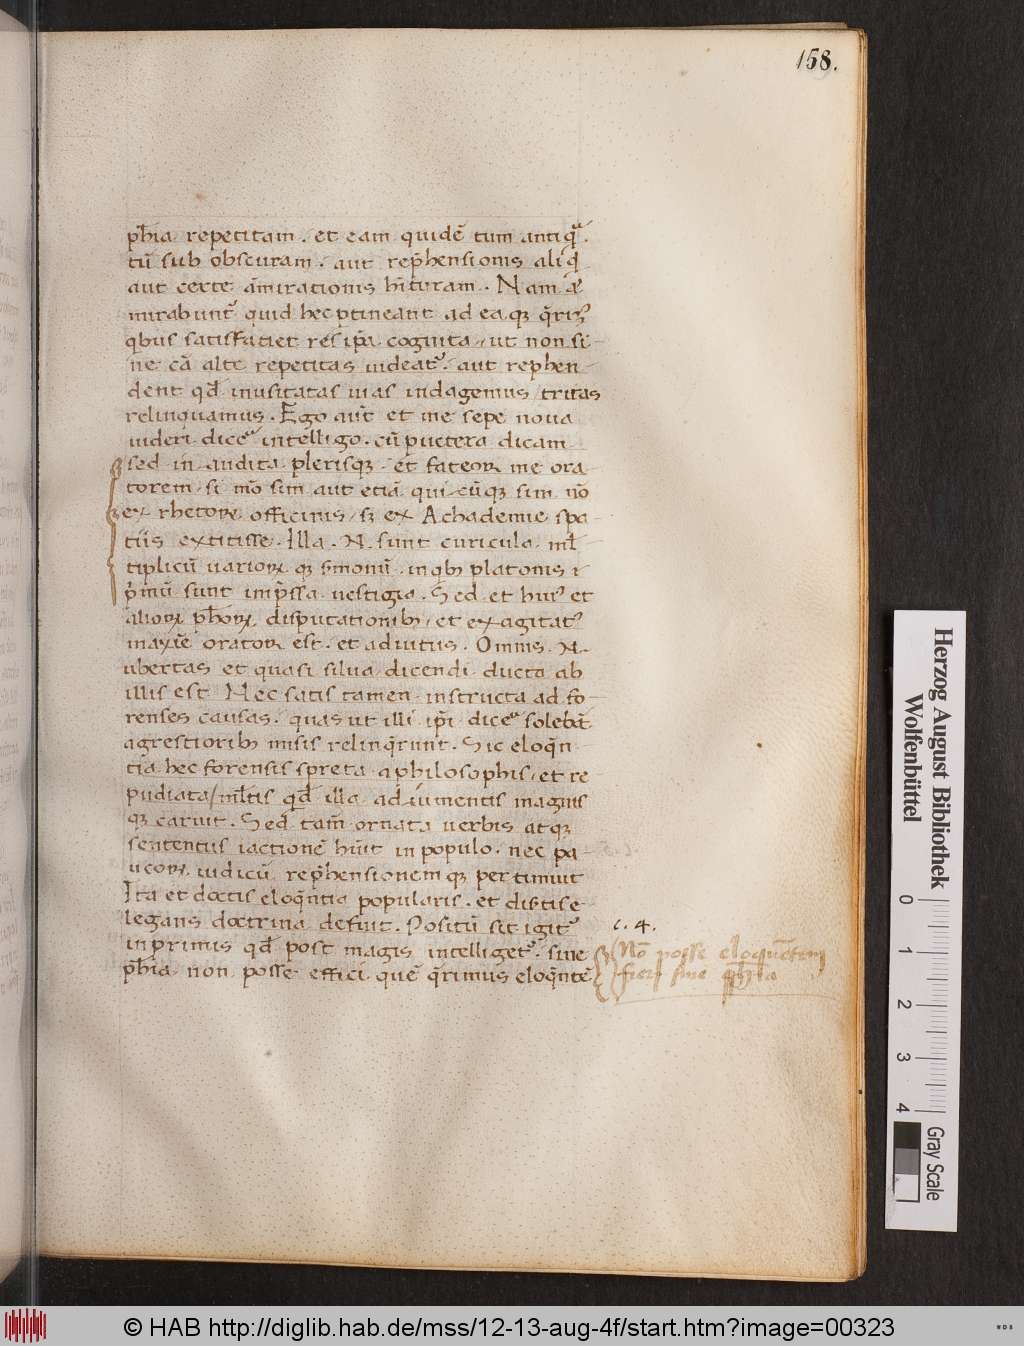 158.
ph̄ia repetitam. et eam quidē tum antiqͣ.
tū sub obscuram. aut rep̄hensionis aliqͥd
aut certe am̄irationis h̄ituram. Nam &
mirabunt᷑ quid hec ptineant ad ea qꝫ q̄rimꝰ
qbus satisfatiet res ip̄a cognita, ut non si-
ne cā alte repetitas uideat᷑. aut rephen-
dent qd̄ inusitatas uias indagemus / tritas
relinquamus. Ego aut̄ et me sepe noua
uideri diceͣ intelligo. cū puetera dicam
sed in audita plerisqꝫ. et fateoꝛ me ora-
torem / si mō sim aut etiā qui cūqꝫ sim nō
ex rhetoꝝ officinis / sꝫ ex Achademie spa-
tiis extitisse. Illa. N. sunt curicula ml̄
tiplicū uarioꝝ qꝫ s̄monū in qbꝫ platonis ⁊
p̄mū sunt imp̄ssa uestigia. Sed et huiꝰ et
alioꝝ ph̄oꝝ disputationibꝫ / et exagitatꝰ
maxīe oratoꝛ est. et adiutus. Omnis. N.
ubertas et quasi silua dicendi ducta ab
illis est Nec satis tamen instructa ad fo-
renses causas. quas ut illi ip̄i diceͣ solebāt
agrestioribꝫ musis relinq̄runt. Sic eloq̄n
tia hec forensis spreta a philosophis / et re-
pudiata / ml̄tis qd̄ illa adiumentis magnis
qꝫ caruit. Sed tam̄ ornata uerbis atqꝫ
sententiis iactionē h̄uit in populo. nec pa-
ucoꝝ iudicū rep̄hensionem qꝫ pertimuit
Ita et doctis eloq̄ntia popularis. et disertis e-
legans doctrina defuit. Positū sit igit᷑ c. 4.
in primis qd̄ post magis intelliget᷑. sine
ph̄ia non posse effici quē q̄rimus eloq̄ntē
Nō posse eloquentem
fieri sine ph̄ia
Herzog August Bibliothek
Wolfenbüttel
0 1 2 3 4
Gray Scale
© HAB http://diglib.hab.de/mss/12-13-aug-4f/start.htm?image=00323